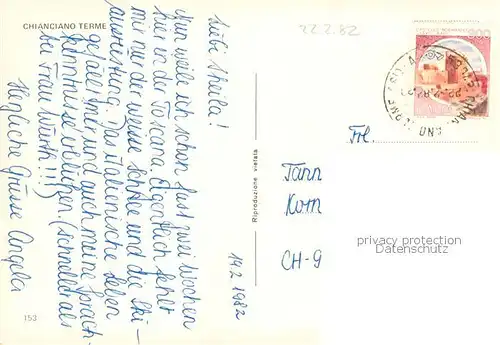 CHIANCIANO TERME
22.2.82
Liebe Sheila!
Nun weile ich schon fast zwei Wochen
hier in der Toscana. Eigentlich fehlt
mir nur der weisse Schnee und die Ski-
ausrüstung. Das italienische Leben
gefällt mir und auch meine Sprach-
kenntnisse
bei Frau Wurth!!!
Herzliche Grüsse Angela
19.2.1982
Riproduzione vietata
Frl.
Tann
Korn
CH-9
privacy protection
Datenschutz
153